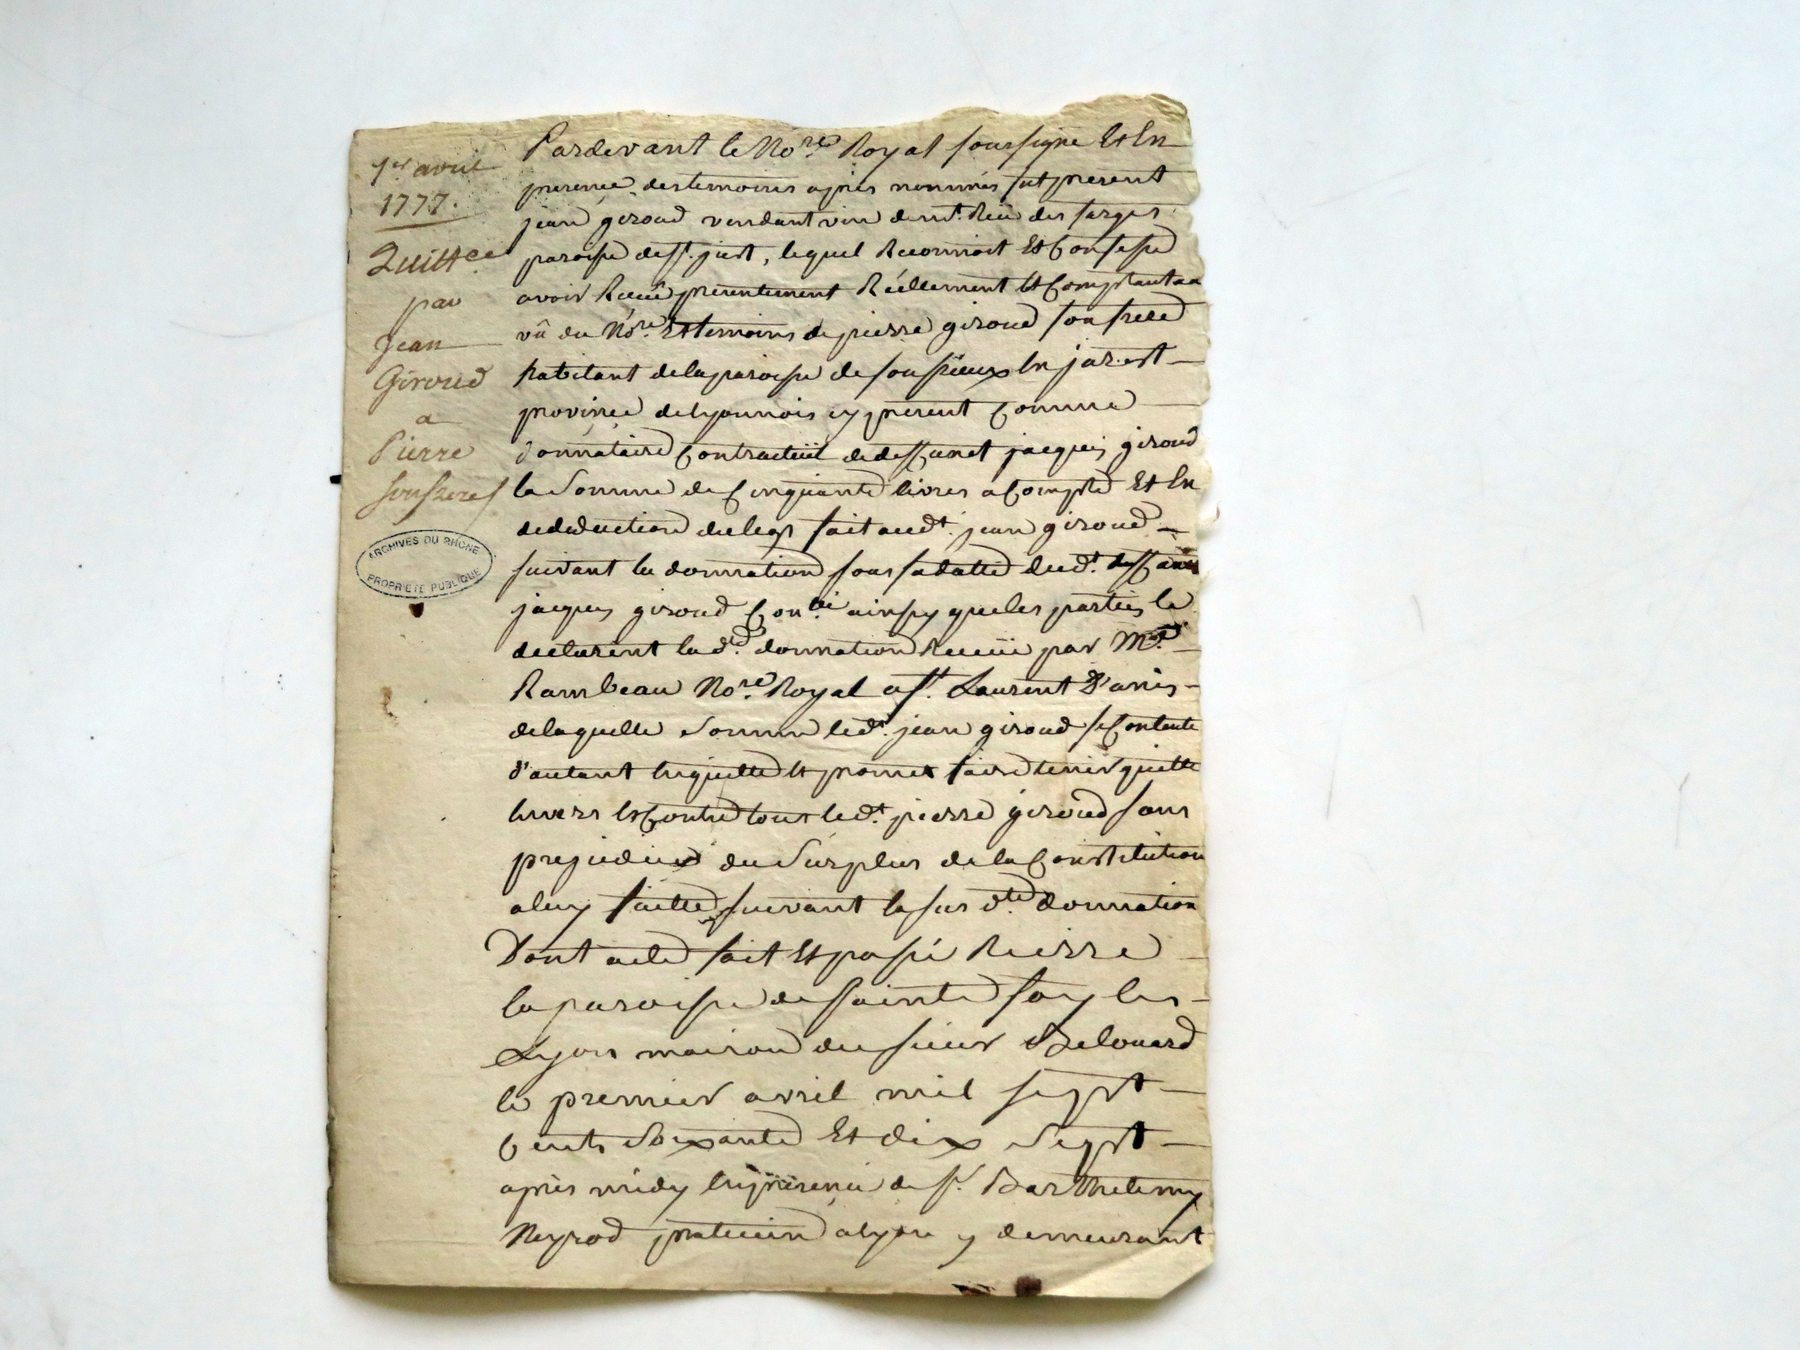 1er avril
1777.
Quittce
par
Jean
Giroud
a
Pierre
son frere
ARCHIVES DU RHONE
PROPRIETE PUBLIQUE
Pardevant le Nore Royal soussigné Et En
presence des temoins après nommés fut present
jean giroud vendant vin demt. Rüe des farges
paroisse de st. just, lequel Reconnoit Et Confesse
avoir Receü presentement Réellement Et Comptant au
vû du Nore. Et temoins de pierre giroud son frere
habitant de la paroisse de sousieux En jarest
province de lyonnois cy present Comme
donnataire Contractuel de deffunct jacques giroud
la somme de Cinquante livres a Compte Et En
deduction du legs fait audt. jean giroud
suivant la donnation sous sa datte dudt. deffunct
jacques giroud ainsy que les parties le
declarent lad. donnation Receüe par Me
Rambeau Nore Royal a st. Laurent D'anis
de laquelle somme led. jean giroud se Contente
d'autant En quitte Et promet faire tenir quitte
Envers Et Contre tous led. pierre giroud sans
prejudice du surplus de la Constitution
a luy faitte suivant la susdte. donnation
Dont acte fait Et passé Rierre
la paroisse de sainte foy les
Lyon maison du sieur Belouard
le premier avril mil sept
Cents soixante Et dix sept
après midy En presence de sr. Barthelemy
Neyrod praticien a lyon y demeurant